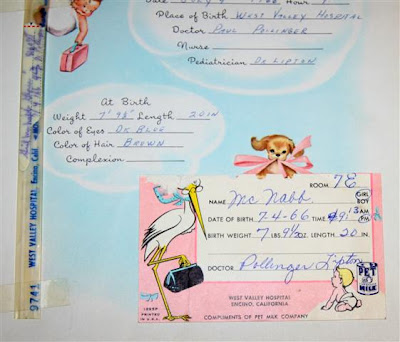 Place of Birth West Valley Hospital
Doctor Paul Pollinger
Nurse
Pediatrician Dr Lipton
At Birth
Weight 7' 9½" Length 20 in
Color of Eyes Dk Blue
Color of Hair Brown
Complexion
ROOM 7E
NAME Mc Nabb GIRL
BOY
DATE OF BIRTH 7-4-66 TIME 9:13 AM
PM
BIRTH WEIGHT 7 LBS 9½ OZ. LENGTH 20 IN.
DOCTOR Pollinger Lipton
PET
MILK
WEST VALLEY HOSPITAL
ENCINO, CALIFORNIA
COMPLIMENTS OF PET MILK COMPANY
PRINTED
IN U.S.A.
9741 WEST VALLEY HOSPITAL Encino, Calif.